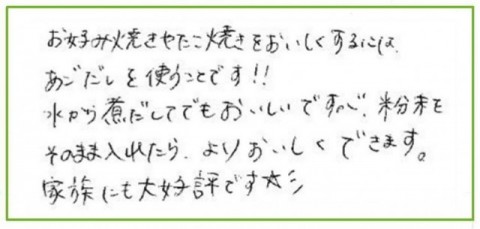 お好み焼きやたこ焼きをおいしくするには、
あごだしを使うことです!!
水から煮だしてでもおいしいですが、粉末を
そのまま入れたら、よりおいしくできます。
家族にも大好評です☆彡